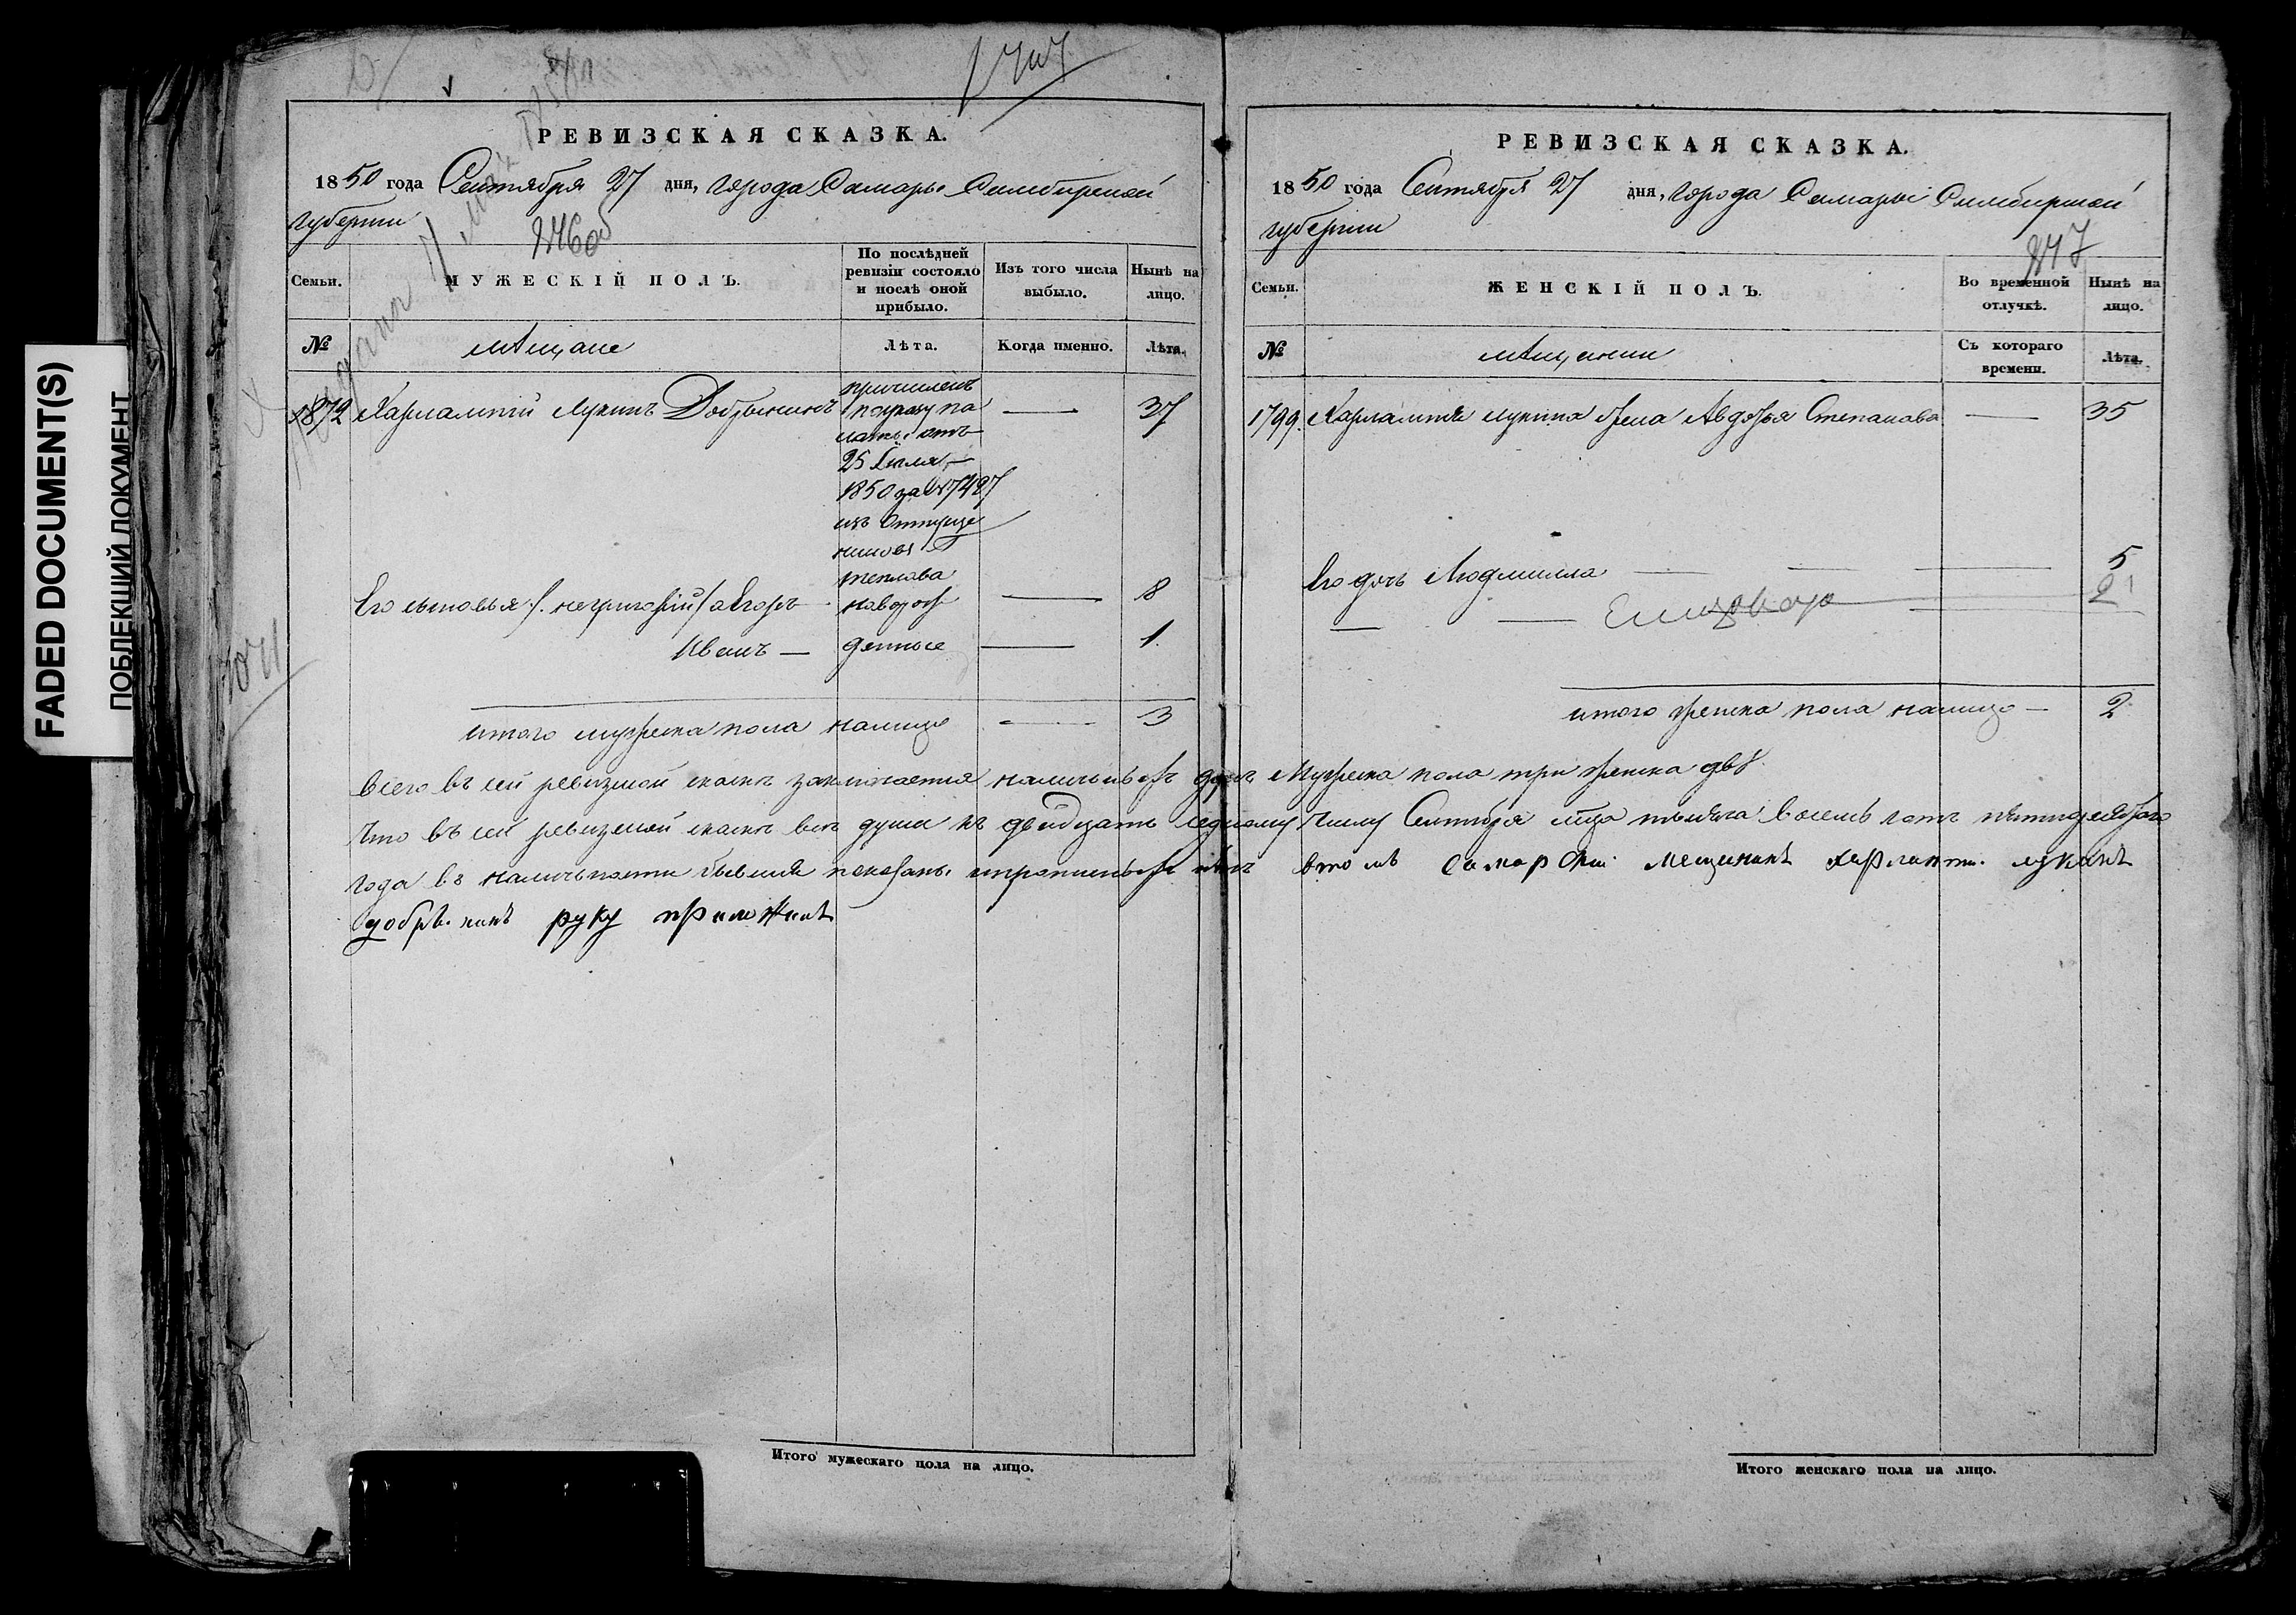 FADED DOCUMENT(S)
ПОБЛЕКШИЙ ДОКУМЕНТ
РЕВИЗСКАЯ СКАЗКА.
1850 года Сентября 27 дня, города Самары Симбирской
губернии
246об
Семьи.
МУЖЕСКІЙ ПОЛЪ.
По послѣдней
ревизіи состояло
и послѣ оной
прибыло.
Изъ того числа
выбыло.
Нынѣ на
лицо.
№
мѣщане
Лѣта.
Когда именно.
Лѣта.
1872 Харлампій Лукинъ Добрынинъ
причисленъ
по указу па
латы отъ
25 Іюля
1850 за №7427
изъ отпуще
нниковъ
Теплова
37
Его сыновья 1. не григорій / а Егоръ
новорож
8
Иванъ —
денные
1.
итого мужеска пола на лицо — 3
РЕВИЗСКАЯ СКАЗКА.
1850 года Сентября 27 дня, города Самары Симбирской
губернии
247
Семьи.
ЖЕНСКІЙ ПОЛЪ.
Во временной
отлучкѣ.
Нынѣ на
лицо.
№
мѣщанки
Съ котораго
времени.
Лѣта.
1799. Харлампія Лукина жена Авдотья Степанова — 35
Его дочь Людмилла — — — 5
— — Елизавета — 2
итого женска пола на лицо — 2
Всего въ сей ревизской сказкѣ заключается наличныхъ душъ мужеска пола три женска двѣ
Что въ сей ревизской сказкѣ всѣ души къ двадцать седьмому числу Сентября м̃ца тысяча восемь сотъ пятидесятого
года въ наличности бывшія показаны и пропущенныхъ нѣтъ втомъ самарски мещининъ харлампи лукинъ
добрынинъ руку приложилъ
Итого мужескаго пола на лицо.
Итого женскаго пола на лицо.